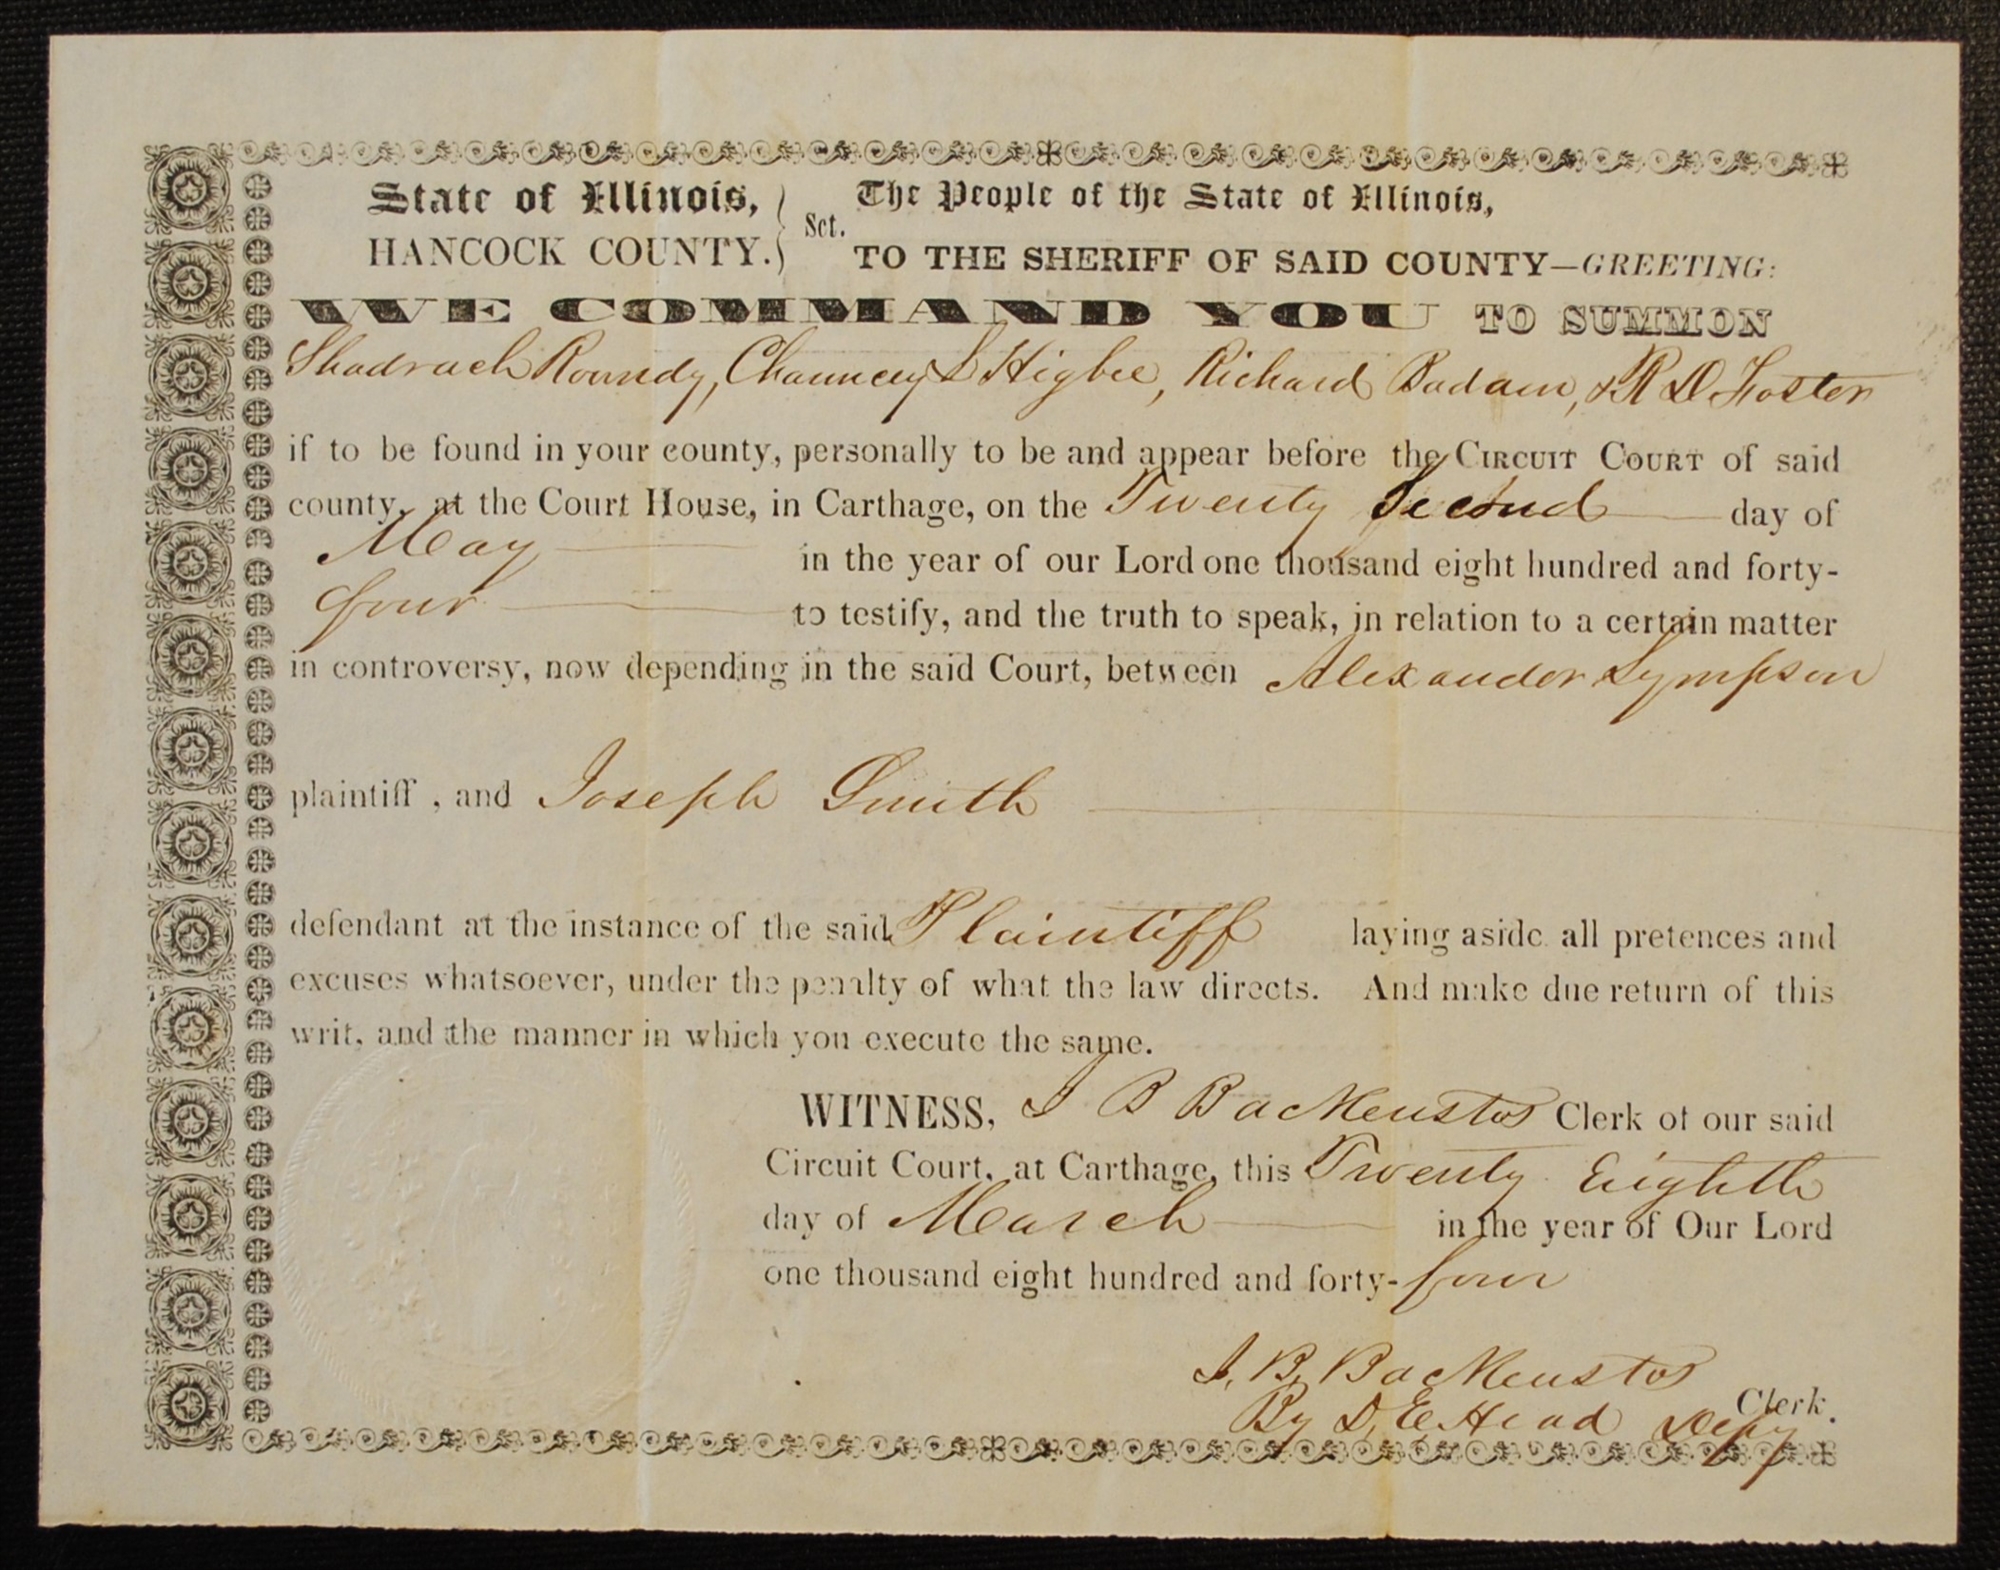 State of Illinois,
HANCOCK COUNTY.
Sct.
The People of the State of Illinois,
TO THE SHERIFF OF SAID COUNTY—GREETING:
WE COMMAND YOU TO SUMMON
Shadrach Roundy, Chauncey L Higbee, Richard Badam, & R D Foster
if to be found in your county, personally to be and appear before the CIRCUIT COURT of said
county, at the Court House, in Carthage, on the Twenty Second day of
May in the year of our Lord one thousand eight hundred and forty-
four to testify, and the truth to speak, in relation to a certain matter
in controversy, now depending in the said Court, between Alexander Sympson
plaintiff , and Joseph Smith
defendant at the instance of the said Plaintiff laying aside all pretences and
excuses whatsoever, under the penalty of what the law directs. And make due return of this
writ, and the manner in which you execute the same.
WITNESS, J B Backenstos Clerk of our said
Circuit Court, at Carthage, this Twenty Eighth
day of March in the year of Our Lord
one thousand eight hundred and forty-four
J. B. Backenstos
Clerk.
By D. E. Head Depy